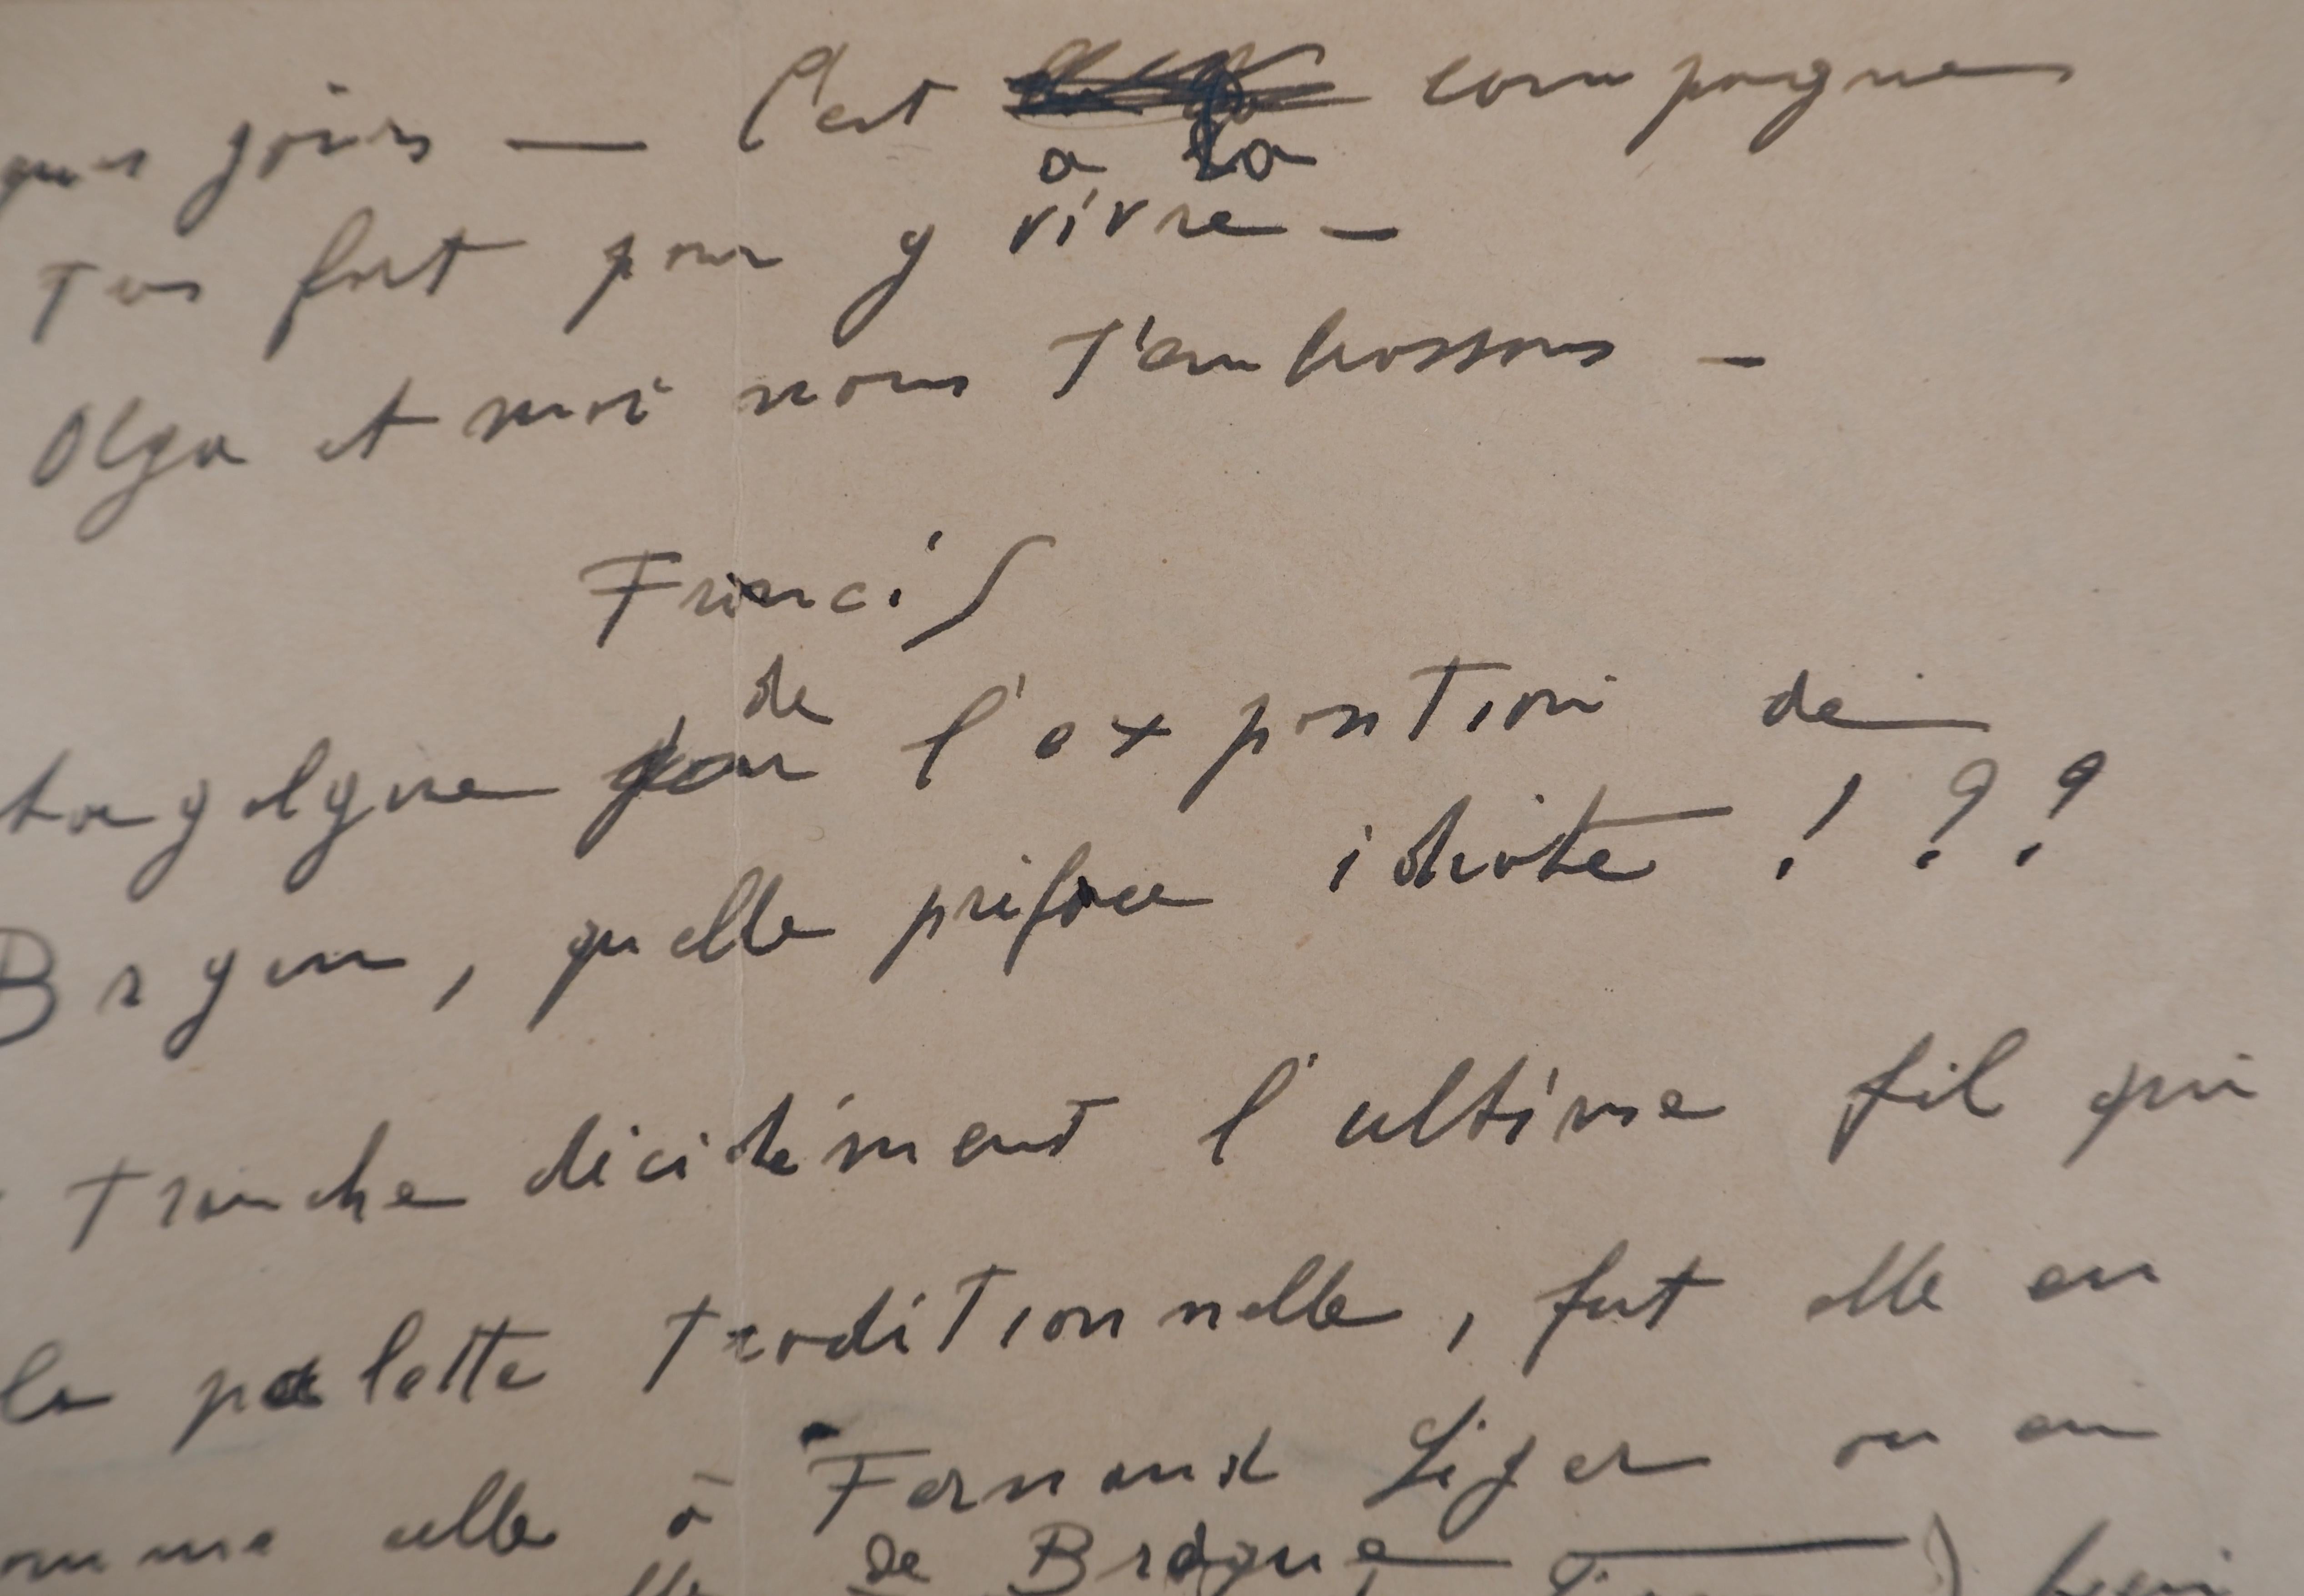 ques jours — C'est à la campagne
fort pour y vivre —
Olga et moi nous t'embrassons —
Francis
de l'exposition de
Bryen, quelle préface idiote ! ? ?
tranche décidément l'ultime fil qui
la palette traditionnelle, fut elle en
omme celle à Fernand Léger ou en
de Braque